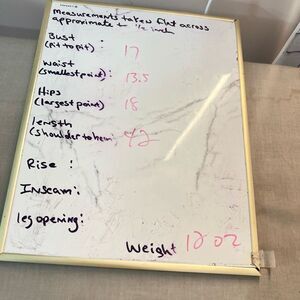 Measurements taken flat across
approximate ± 1/2 inch
Bust
(Pit to Pit): 17
waist
(smallest point): 13.5
Hips
(largest point) 18
length
(shoulder to hem) 42
Rise :
Inseam:
leg opening:
Weight 12 oz